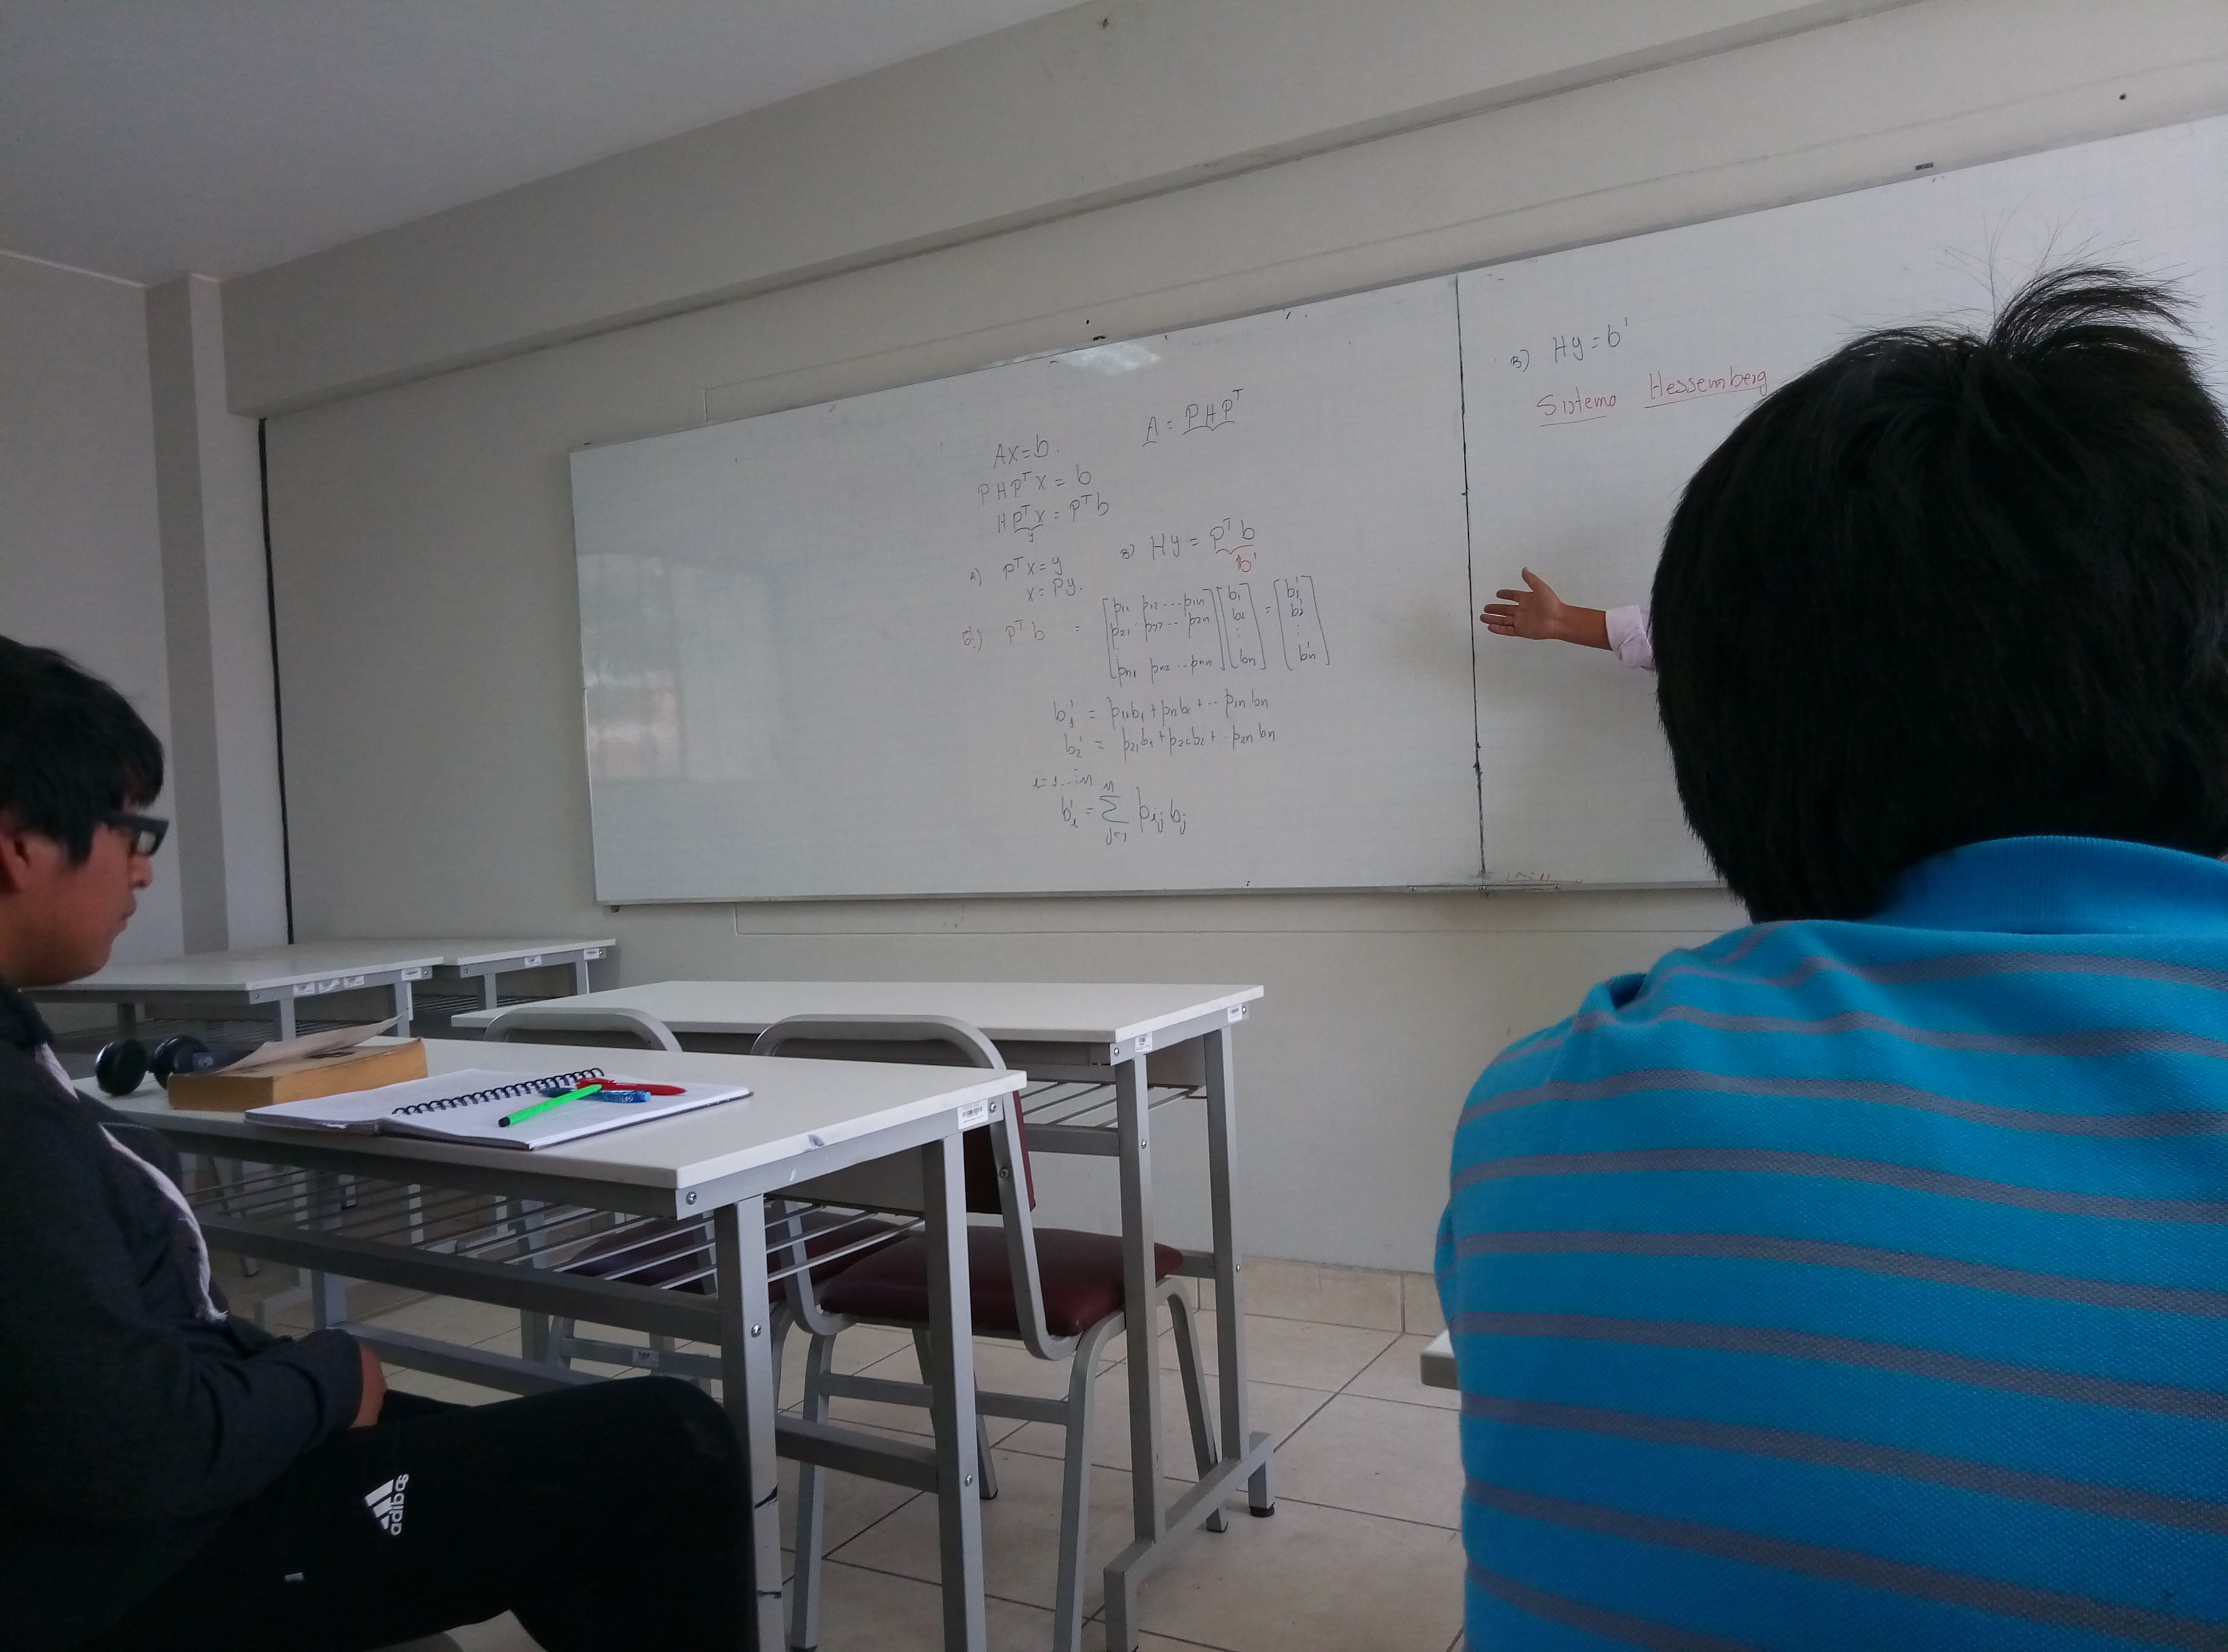 Ax=b.
A = PHPᵀ
PHPᵀx = b
HPᵀx = Pᵀb
y
A) Pᵀx = y
x = Py.
B) Hy = Pᵀb
b'
b':) Pᵀb = [p11 p12 ... p1n] [b1] = [b'1]
[p21 p22 ... p2n] [b2] [b'2]
⋮ ⋮
[pn1 pn2 ... pnn] [bn] [b'n]
b'1 = p11b1 + p12b2 + ... p1n bn
b'2 = p21b1 + p22b2 + . p2n bn
i=1...n
b'i = Σ pij bj
n
j=1
B) Hy = b'
Sistema Hessemberg
adidas